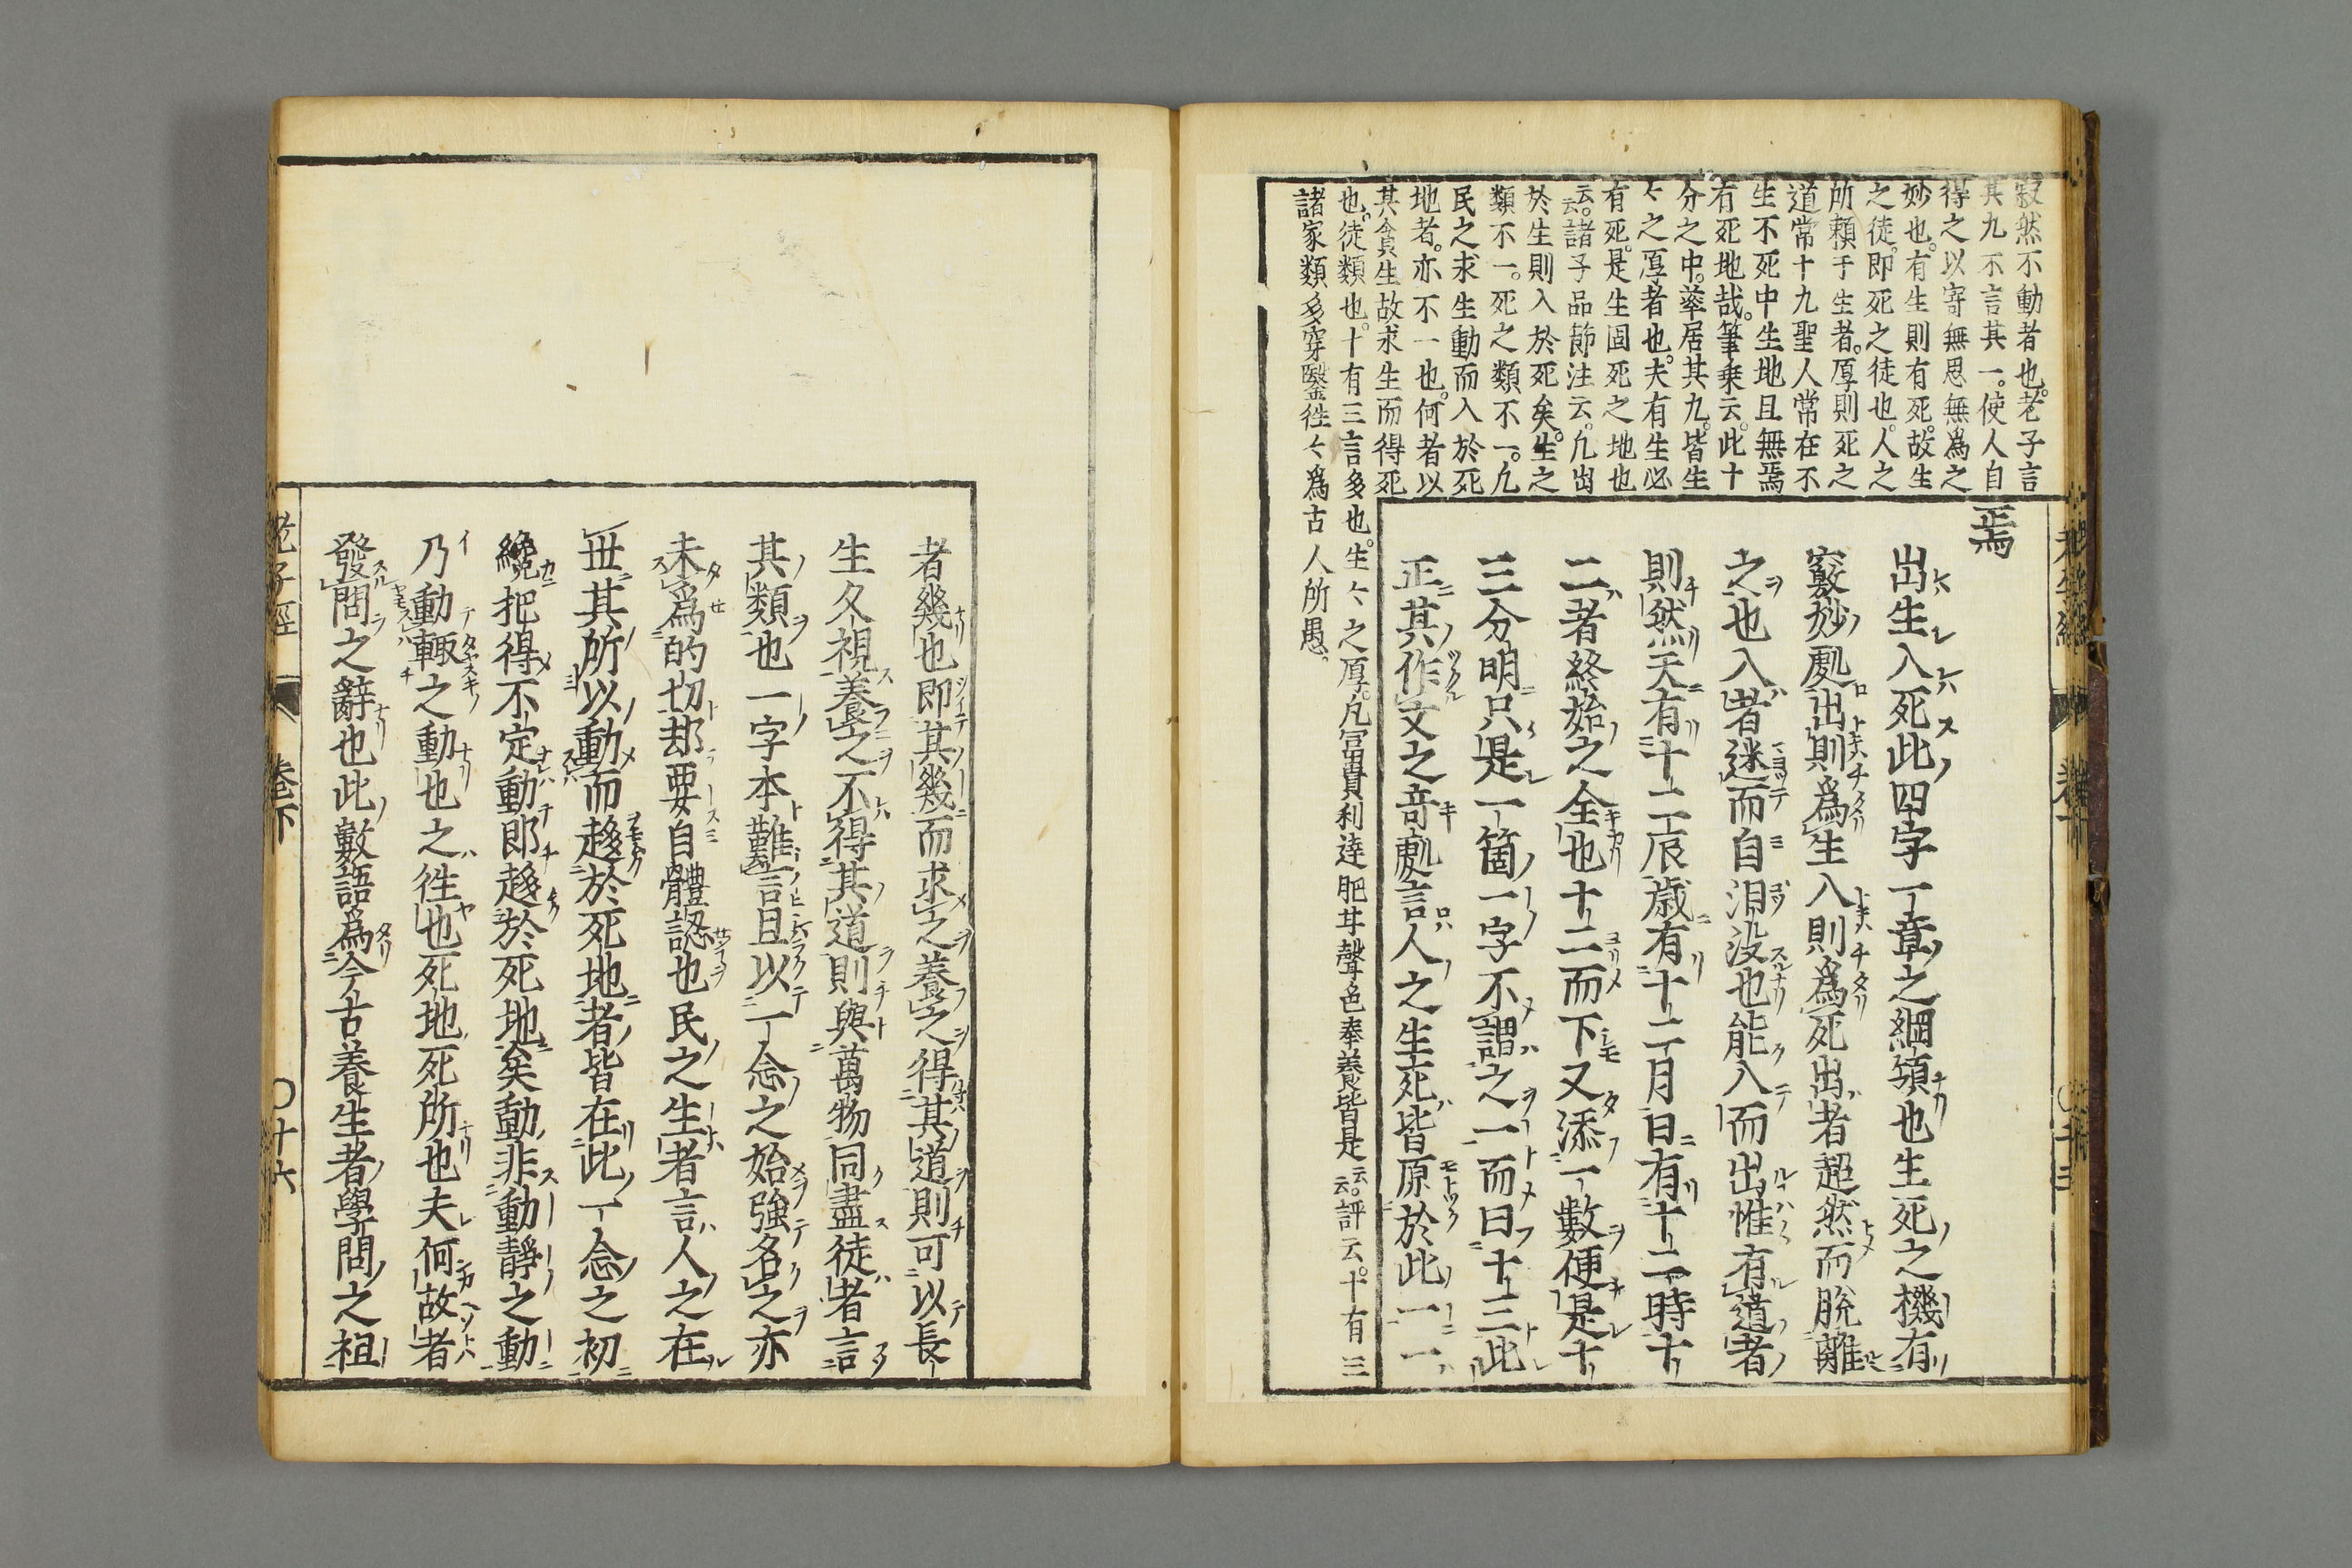 寂然不動者也。老子言
其九不言其一。使人自
得之以寄無思無爲之
妙也。有生則有死。故生
之徒。即死之徒也。人之
所賴于生者。厚則死之
道常十九聖人常在不
生不死中生地且無焉
有死地哉。筆乗云。此十
分之中。蓽居其九。皆生
々之厚者也。夫有生必
有死。是生固死之地也
云云。諸子品節注云。凡出
於生則入於死矣。生之
類不一。死之類不一。凡
民之求生動而入於死
地者。亦不一也。何者以
其貪生故求生而得死
也。徒類也。十有三言多也。生々之厚。凡富貴利達肥甘聲色奉養皆是云云。評云。十有三
諸家類多穿鑿徃々爲古人所愚、
焉
出生入死此四字一章之綱領也生死之機有
竅妙處出則爲生入則爲死出者超然而脱離
之也入者迷而自汨没也能入而出惟有道者
則然天有十二辰歳有十二月日有十二時十
二者終始之全也十二而下又添一數便是十
三分明只是一箇一字不謂之一而曰十三此
正其作文之竒處言人之生死皆原於此一一
者幾也即其幾而求之養之得其道則可以長
生久視養之不得其道則與萬物同盡徒者言
其類也一字本難言且以一念之始強名之亦
未爲的切却要自體認也民之生者言人之在
世其所以動而趍於死地者皆在此一念之初
纔把得不定動即趍於死地矣動非動靜之動
乃動輙之動也之徃也死地死所也夫何故者
發問之辭也此數語爲今古養生者學問之祖
老子經 卷下 〇十六